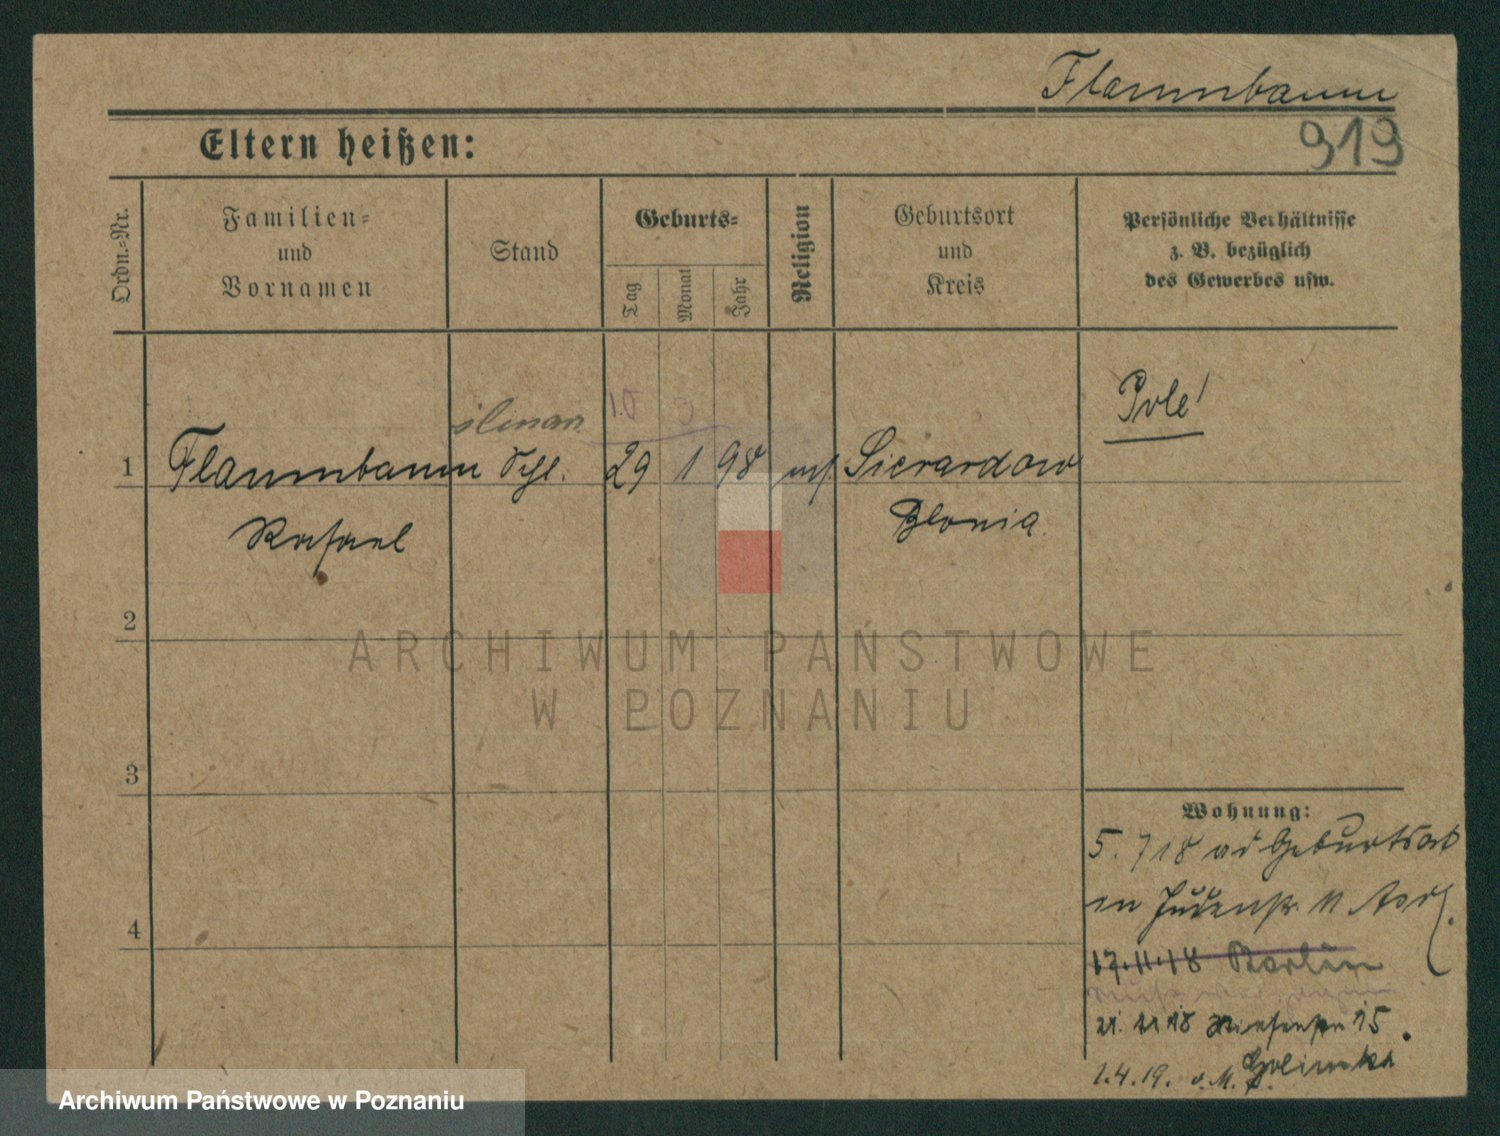 Flaumbaum
Eltern heißen:
919
Ordn.-Nr.
Familien-
und
Vornamen
Stand
Geburts-
Tag
Monat
Jahr
Religion
Geburtsort
und
Kreis
Persönliche Verhältnisse
z. B. bezüglich
des Gewerbes usw.
Pole!
10 3
1 Flaumbaum Schl. 29 1 98 mos. Sierardow
Rafael Blonia
2
3
4
Wohnung:
5. 7 18 Geburtsort
in Judenstr. 11
17.11.18 Berlin
21. 11 18 15.
1.4.19. v. M.
ARCHIWUM PAŃSTWOWE
W POZNANIU
Archiwum Państwowe w Poznaniu